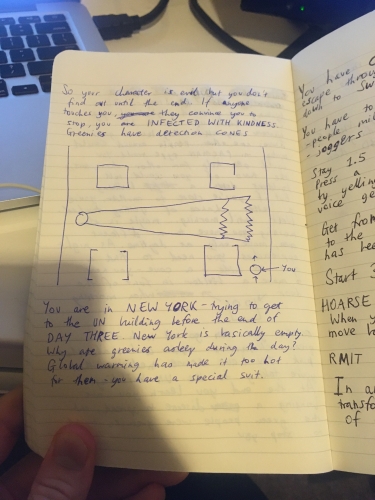 So your character is evil but you don't
find out until the end. If anyone
touches you, they convince you to
stop, you are INFECTED WITH KINDNESS.
Greenies have detection CONES
You
You are in NEW YORK - trying to get
to the UN building before the end of
DAY THREE New York is basically empty.
Why are greenies asleep during the day?
Global warning has made it too hot
for them - you have a special suit.
You have
escape throug
down to SW
You have to
- people mil
- joggers
Stay 1.5
Press a
by yelling
voice ge
Get from
to the
has bee
Start 3
HOARSE
When y
move b
RMIT
In a
transfo
of